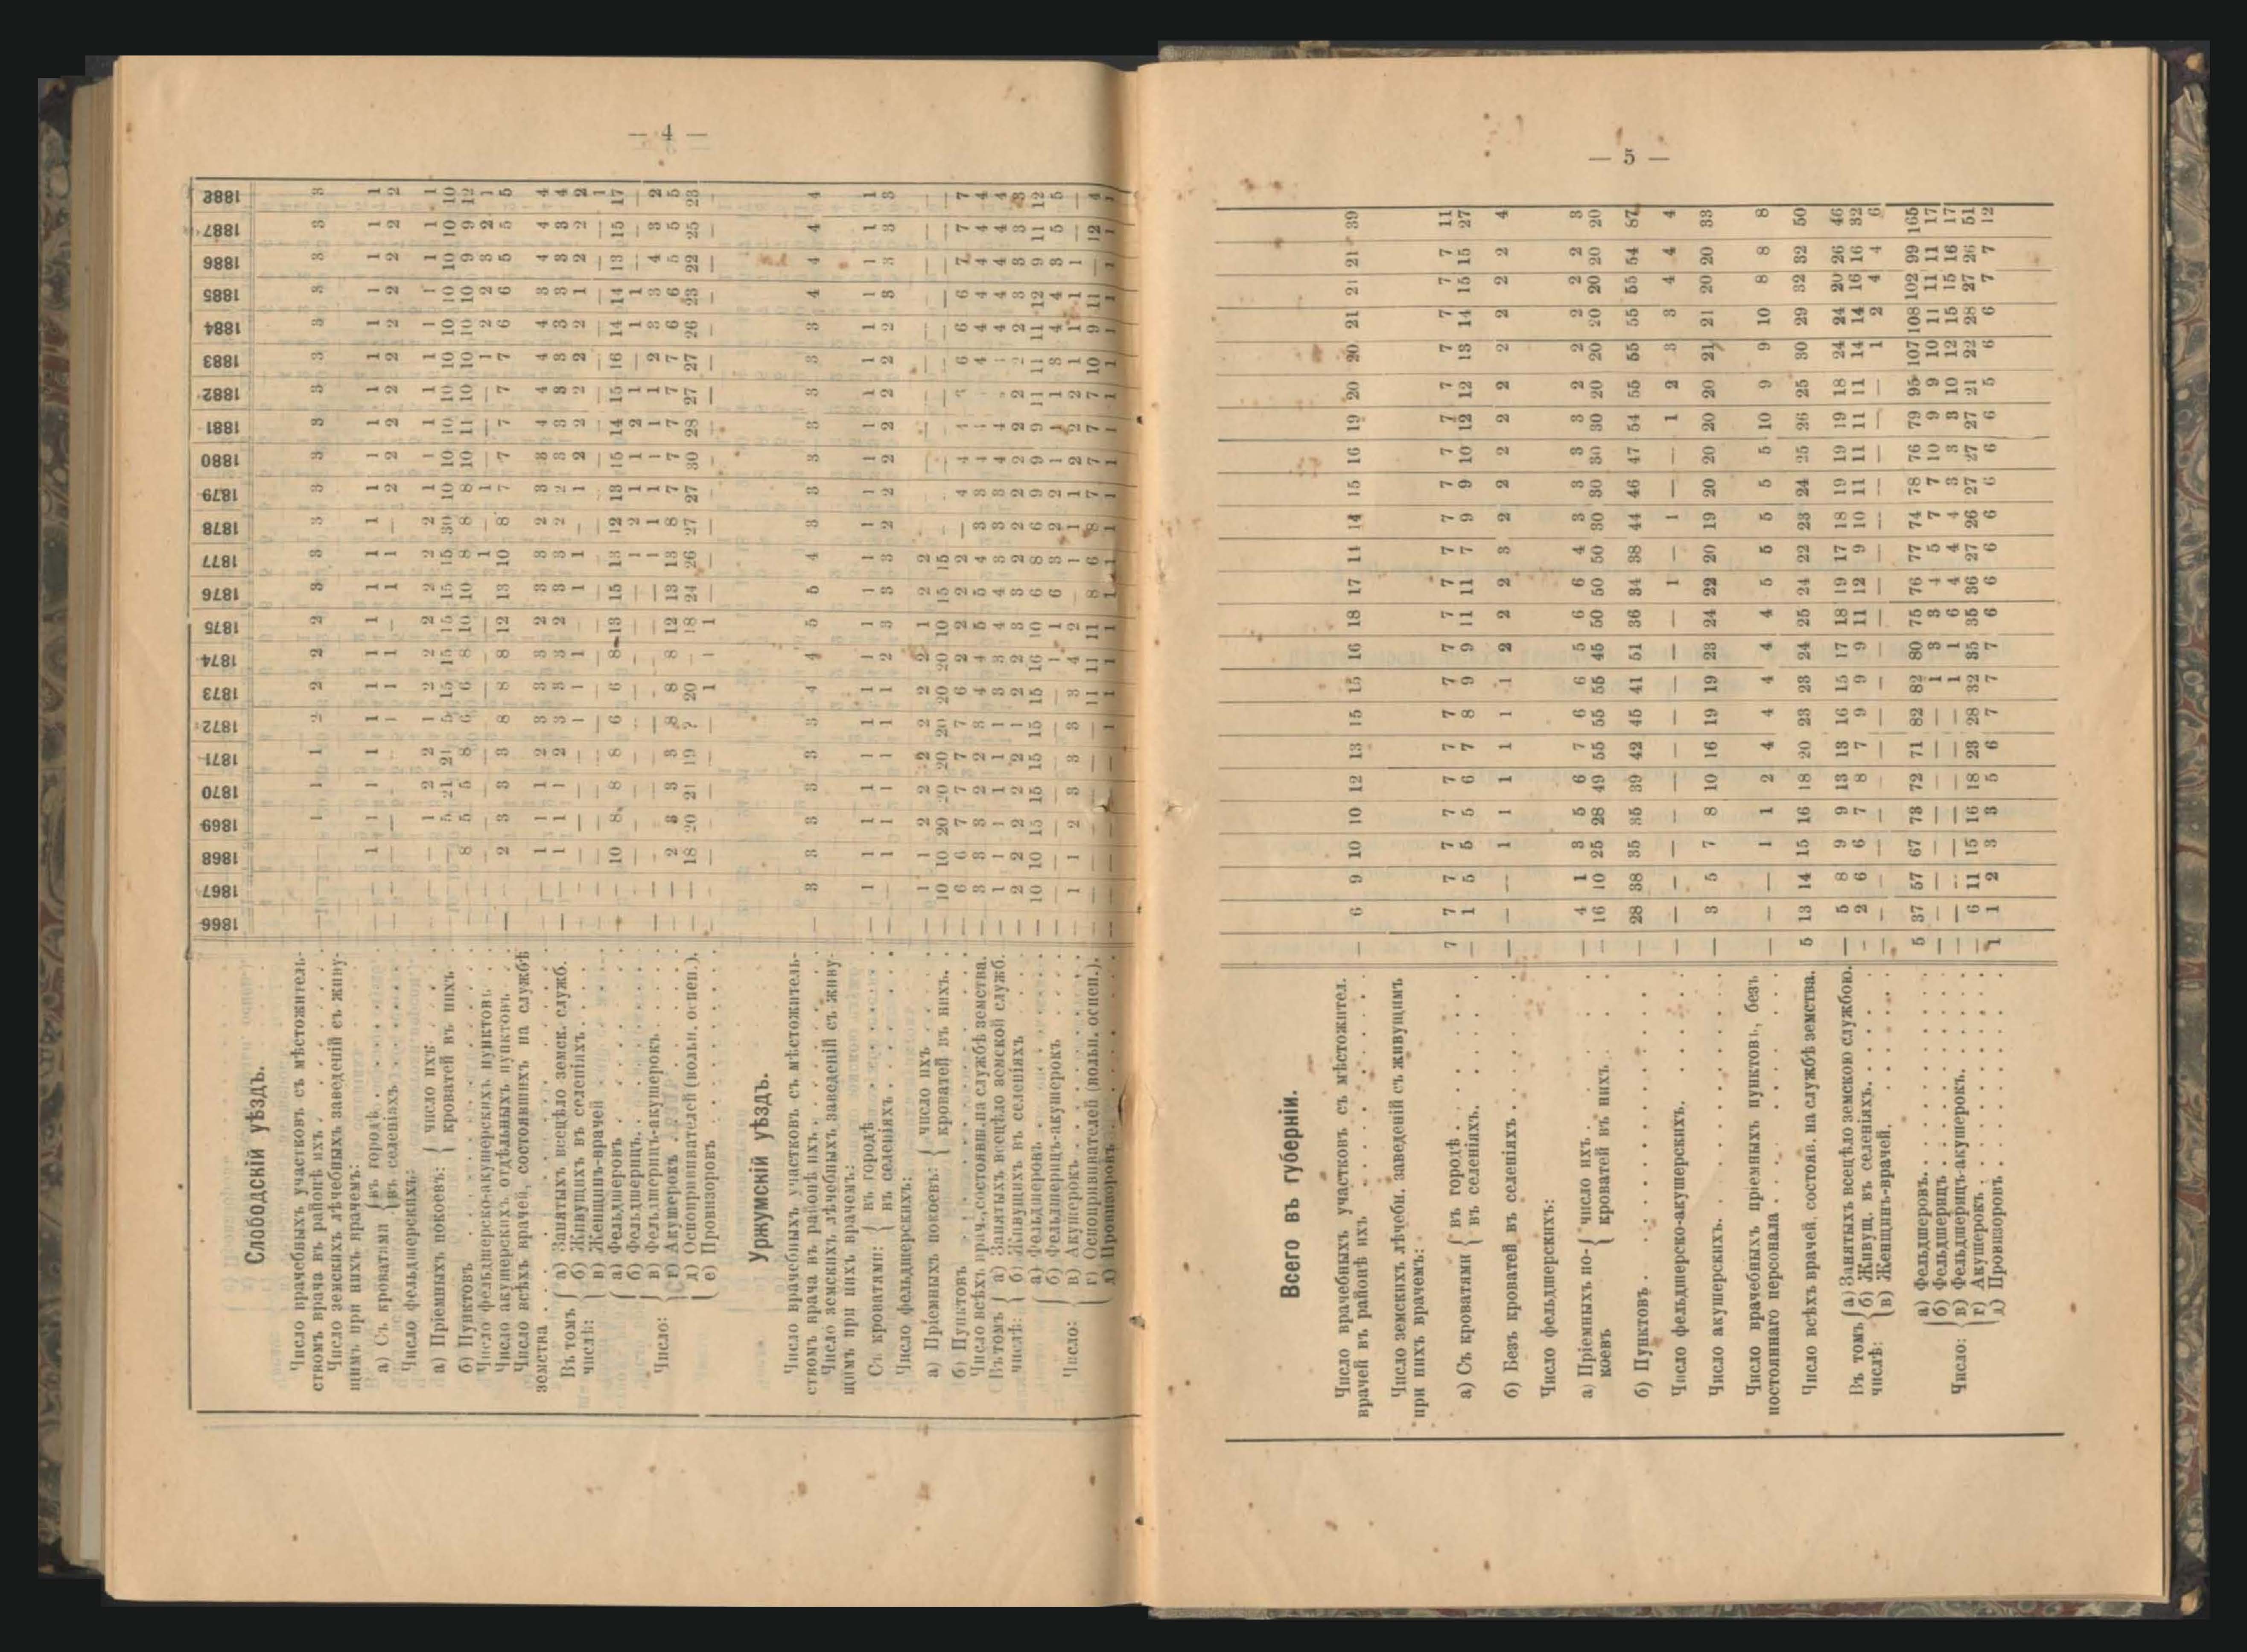 — 4 —
1866 1867 1868 1869 1870 1871 1872 1873 1874 1875 1876 1877 1878 1879 1880 1881 1882 1883 1884 1885 1886 1887 1888
Слободскій уѣздъ.
Число врачебныхъ участковъ съ мѣстожитель-
ствомъ врача въ районѣ ихъ — — — 1 1 1 2 2 2 2 3 3 3 3 3 3 3 3 3 3 3 3 3
Число земскихъ лѣчебныхъ заведеній съ живу-
щимъ при нихъ врачемъ:
а) Съ кроватями { въ городѣ — — 1 1 1 1 1 1 1 1 1 1 1 1 1 1 1 1 1 1 1 1 1
въ селеніяхъ — — — — — — 1 1 1 — 1 1 — 2 2 2 2 2 2 2 2 2 2
Число фельдшерскихъ:
а) Пріемныхъ покоевъ: { число ихъ — — — 1 2 2 1 2 2 2 2 2 2 1 1 1 1 1 1 1 1 1 1
кроватей въ нихъ — — — 5 21 21 5 15 15 15 15 15 30 10 10 10 10 10 10 10 10 10 10
б) Пунктовъ — — 8 5 5 8 6 6 8 10 10 8 8 8 10 11 10 10 10 10 9 9 12
Число фельдшерско-акушерскихъ пунктовъ — — — — — — — — — — — 1 — 1 — — — 1 2 2 3 2 1
Число акушерскихъ отдѣльныхъ пунктовъ — — 2 3 3 3 8 8 8 12 13 10 8 7 7 7 7 7 6 6 5 5 5
Число всѣхъ врачей, состоявшихъ на службѣ
земства — — 1 1 1 2 3 3 3 2 3 3 2 3 3 4 4 4 4 3 4 4 4
Въ томъ числѣ: { а) Занятыхъ всецѣло земск. служб. — — 1 1 1 2 3 3 3 2 3 3 2 2 3 3 3 3 3 3 3 3 4
б) Живущихъ въ селеніяхъ — — — — — — 1 1 1 — 1 1 — 1 2 2 2 2 2 1 2 2 2
в) Женщинъ-врачей — — — — — — — — — — — — — — — — — — — — — — 1
Число: { а) Фельдшеровъ — — 10 8 8 8 6 6 8 13 15 13 12 13 15 14 15 16 14 14 13 15 17
б) Фельдшерицъ — — — — — — — — — — — 1 2 1 1 2 1 — 1 1 — — —
в) Фельдшерицъ-акушерокъ — — — — — — — — — — — 1 1 1 1 1 1 2 3 3 4 3 2
г) Акушерокъ — — 2 3 3 3 8 8 8 12 13 13 8 7 7 7 7 7 6 6 5 5 5
д) Оспопрививателей (вольн. оспен.) — — 18 20 21 19 ? 20 — 18 24 26 27 27 30 28 27 27 26 23 22 25 23
е) Провизоровъ — — — — — — — 1 1 1 — — — — — — — — — — — — —
Уржумскій уѣздъ.
Число врачебныхъ участковъ съ мѣстожитель-
ствомъ врача въ районѣ ихъ — 3 3 3 3 3 3 4 4 5 5 4 3 3 3 3 3 3 3 4 4 4 4
Число земскихъ лѣчебныхъ заведеній съ живу-
щимъ при нихъ врачемъ:
Съ кроватями: { въ городѣ — 1 1 1 1 1 1 1 1 1 1 1 1 1 1 1 1 1 1 1 1 1 1
въ селеніяхъ — — 1 1 1 1 1 1 2 3 3 3 2 2 2 2 2 2 2 3 3 3 3
Число фельдшерскихъ:
а) Пріемныхъ покоевъ: { число ихъ — 1 1 2 2 2 2 2 2 1 2 2
кроватей въ нихъ — 10 10 20 20 20 20 20 20 10 15 15
б) Пунктовъ — 6 6 7 7 7 7 6 2 2 2 2 — 4 4 4 6 6 6 7 7 7
Число всѣхъ врач., состоявш. на службѣ земства. — 3 3 3 2 2 3 4 4 5 5 4 3 3 4 4 4 4 4 4 4
Въ томъ числѣ: { а) Занятыхъ всецѣло земской служб. — 1 1 1 1 1 1 3 3 4 4 3 3 3 4 4 4 4 4 4 4
б) Живущихъ въ селеніяхъ — 2 2 2 2 2 1 2 2 3 3 2 2 2 2 2 2 2 2 3 3 3 3
Число: { а) Фельдшеровъ — 10 10 15 15 15 15 15 16 10 6 8 6 9 9 9 11 11 11 12 9 11 12
б) Фельдшерицъ-акушерокъ — — — — — — — — 1 1 6 3 2 2 1 1 1 3 4 4 3 5 5
в) Акушерокъ — 1 1 2 3 3 3 3 4 2 — 1 1 1 2 2 2 1 1 1 1 — —
г) Оспопрививателей (вольн. оспен.) — — — — — — — 11 11 11 8 6 8 7 7 7 7 10 9 11 — 12 4
д) Провизоровъ — — — — — — 1 1 1 1 1 1 1 1 1 1 1 1 1 1 1 1 1
— 5 —
Всего въ губерніи.
Число врачебныхъ участковъ съ мѣстожител.
врачей въ районѣ ихъ — 6 9 10 10 12 13 15 15 16 18 17 14 14 15 16 19 20 20 21 21 21 39
Число земскихъ лѣчебн. заведеній съ живущимъ
при нихъ врачемъ:
а) Съ кроватями { въ городѣ 7 7 7 7 7 7 7 7 7 7 7 7 7 7 7 7 7 7 7 7 7 7 11
въ селеніяхъ — 1 5 5 5 6 7 8 9 9 11 11 7 9 9 10 12 12 13 14 15 15 27
б) Безъ кроватей въ селеніяхъ — — — 1 1 1 1 1 1 2 2 2 3 2 2 2 2 2 2 2 2 2 4
Число фельдшерскихъ:
а) Пріемныхъ по-коевъ { число ихъ — 4 1 3 5 6 7 6 6 5 6 6 4 3 3 3 3 2 2 2 2 2 3
кроватей въ нихъ — 16 10 25 28 49 55 55 55 45 50 50 50 30 30 30 30 20 20 20 20 20 20
б) Пунктовъ — 28 38 35 35 39 42 45 41 51 36 34 38 44 46 47 54 55 55 55 55 54 87
Число фельдшерско-акушерскихъ — — — — — — — — — — — 1 — 1 — — 1 2 3 3 4 4 4
Число акушерскихъ — 3 5 7 8 10 16 19 19 23 24 22 20 19 20 20 20 20 21 21 20 20 33
Число врачебныхъ пріемныхъ пунктовъ, безъ
постояннаго персонала — — — 1 1 2 4 4 4 4 4 5 5 5 5 5 10 9 9 10 8 8 8
Число всѣхъ врачей, состояв. на службѣ земства. 5 13 14 15 16 18 20 23 23 24 25 24 22 23 24 25 26 25 30 29 32 32 50
Въ томъ числѣ: { а) Занятыхъ всецѣло земскою службою. — 5 8 9 9 13 13 16 15 17 18 19 17 18 19 19 19 18 24 24 20 26 46
б) Живущ. въ селеніяхъ — 2 6 6 7 8 7 9 9 9 11 12 9 10 11 11 11 11 14 14 16 16 32
в) Женщинъ-врачей — — — — — — — — — — — — — — — — — — 1 2 4 4 6
Число: { а) Фельдшеровъ 5 37 57 67 73 72 71 82 82 80 75 76 77 74 78 76 79 95 107 108 102 99 165
б) Фельдшерицъ — — — — — — — — 1 3 3 4 5 7 7 10 9 9 10 11 11 11 17
в) Фельдшерицъ-акушерокъ — — — — — — — — 1 1 6 4 4 4 3 3 3 10 12 15 15 16 17
г) Акушерокъ — 6 11 15 16 18 23 28 32 35 35 36 27 26 27 27 27 21 22 28 27 26 51
д) Провизоровъ 1 1 2 3 3 5 6 7 7 7 6 6 6 6 6 6 6 5 6 6 7 7 12